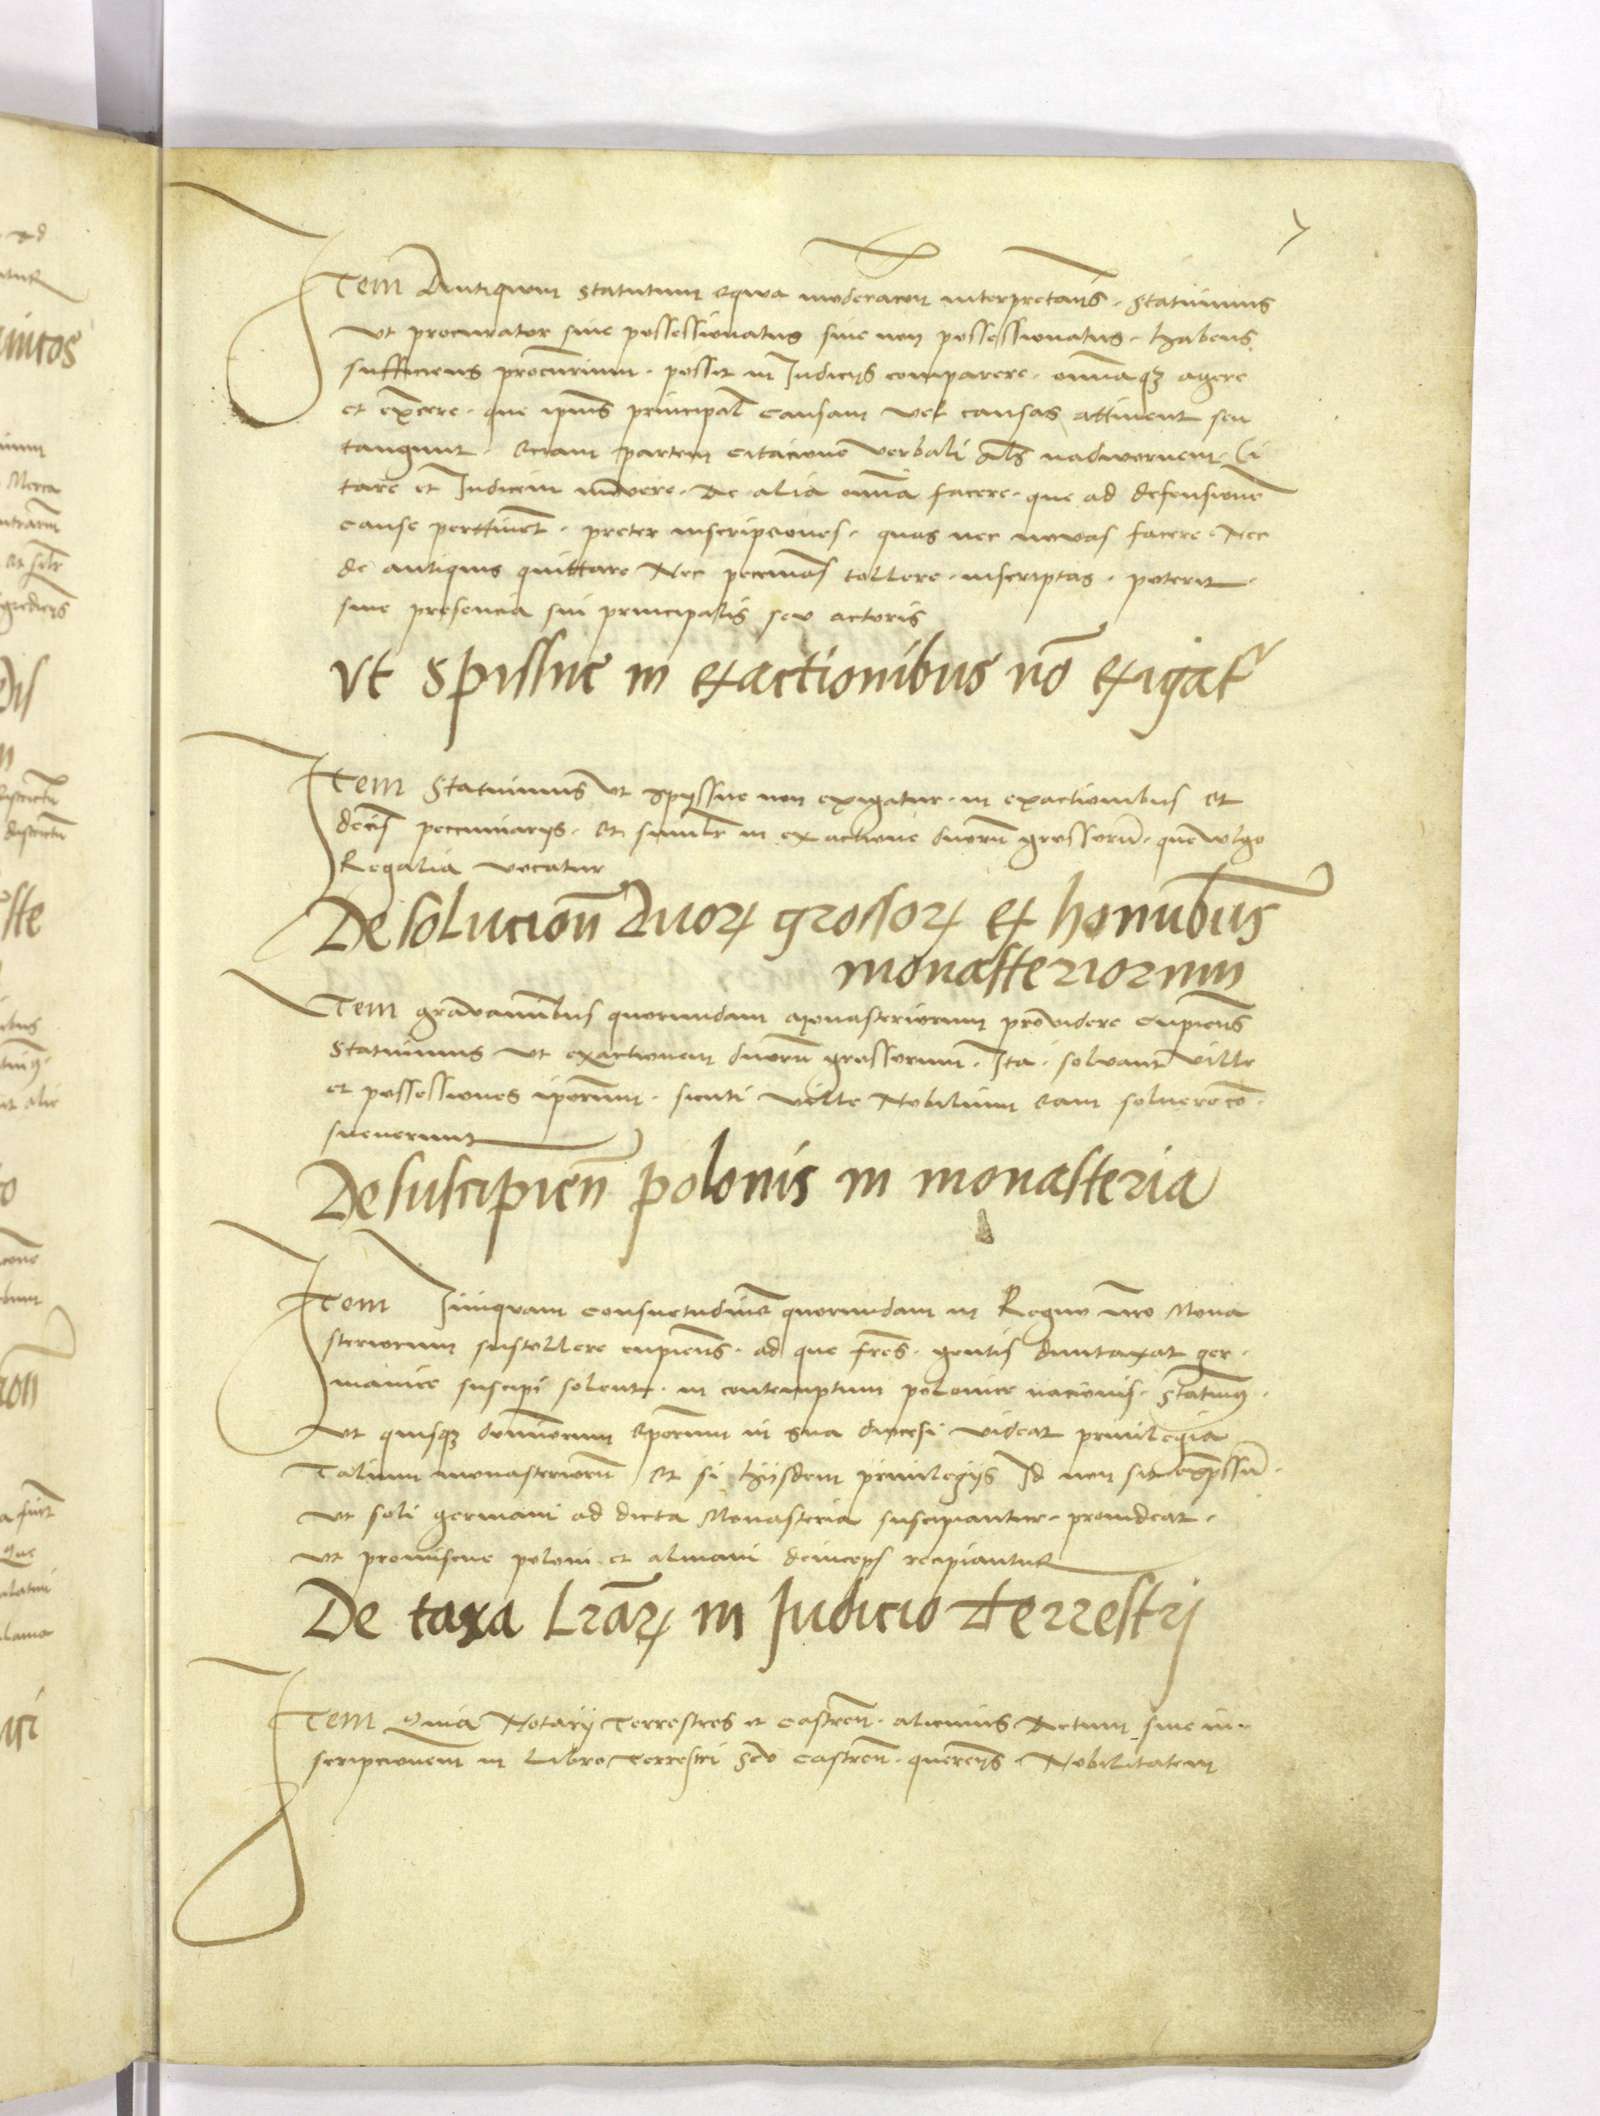 7
Item Antiquum statutum equa moderacon interpretan̄s · Statuimus
Vt procurator siue possessionatus siue non possessionatus · habens
sufficiens procur̄ium · possit in Iudicijs comparere · omn̄iaqꝫ agere
et ex̄cere · que ip̄ius principal̄ causam vel causas attinent seu
tangunt · Eciam partem citacione verbali al̄s Ci
tare et Iudicem mouere · Ac alia om̄ia facere · que ad defensionē
cause perttinēt · preter inscripciones · quas nec nouas facere Nec
de antiquis quittare Nec peccunias tollere · inscriptas · poterit ·
sine presencia sui principalis seu actoris
Vt spissue in exactionibus nō exigat̄
Item Statuimus vt spyssue non exigatur · in exactionibus et
dec̄is peccuniarijs · Et simil̄r in exactione duorū grossorū · que wlgo
Regalia vocatur
De solucion̄ duoꝝ grossoꝝ ex honnibus
monasteriorum
Item grauaminibus quorundam Monasteriorum prouidere cupien̄s
Statuimus vt exactionem duorū grossorum · Ita · soluant ville
et possessiones ip̄orum · sicuti ville Nobilium eam soluere cō ·
sueuerunt
De suscipien̄ polonis in monasteria
Item Iniquam consuetudinē quorundam in Regno nr̄o Mona
steriorum sustollere cupien̄s · ad que fr̄es · gentis duntaxat ger ·
manice suscipi solent · in contemptum polonice nacionis · Statuimꝰ ·
Vt quisqꝫ dominorum Ep̄orum in sua diocesi videat priuilegia
Talium monasteriorū Et si hijsdem priuilegijs Id non sit exp̄ssū ·
Vt soli germani ad dicta Monasteria suscipiantur · prouideat ·
Vt promiscue poloni et almani deinceps recipiantur
De taxa Lr̄aꝝ in Iudicio Terrestrj
Item Quia Notarij Terrestres et castren̄ · alicuius Actum siue in ·
scripcionem in Libro Terrestri seu castren̄ · queren̄tis Nobilitatem